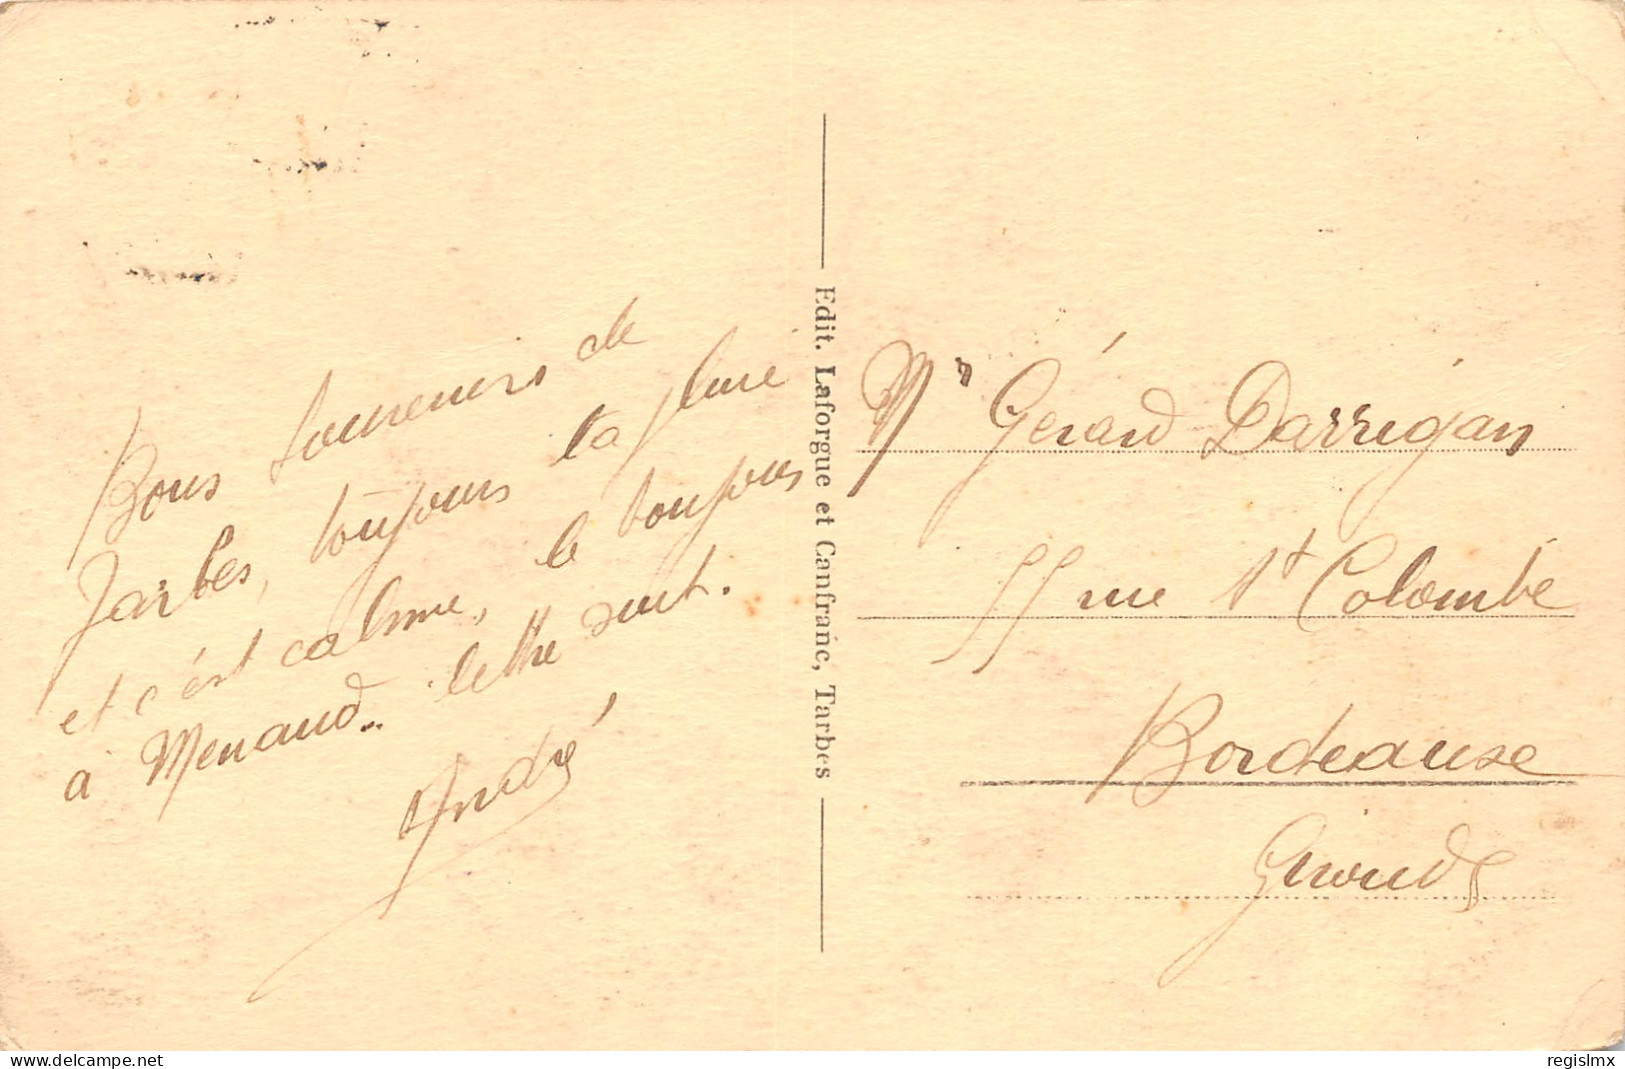 Bons souvenirs de
Tarbes, toujours la pluie
et c'est calme, le toujours
à Menaud.. lettre suit.
André
Edit. Laforgue et Canfranc, Tarbes
Mr Gérard Darrigan
55 rue St Colombe
Bordeause
Gironde
www.delcampe.net
regislmx